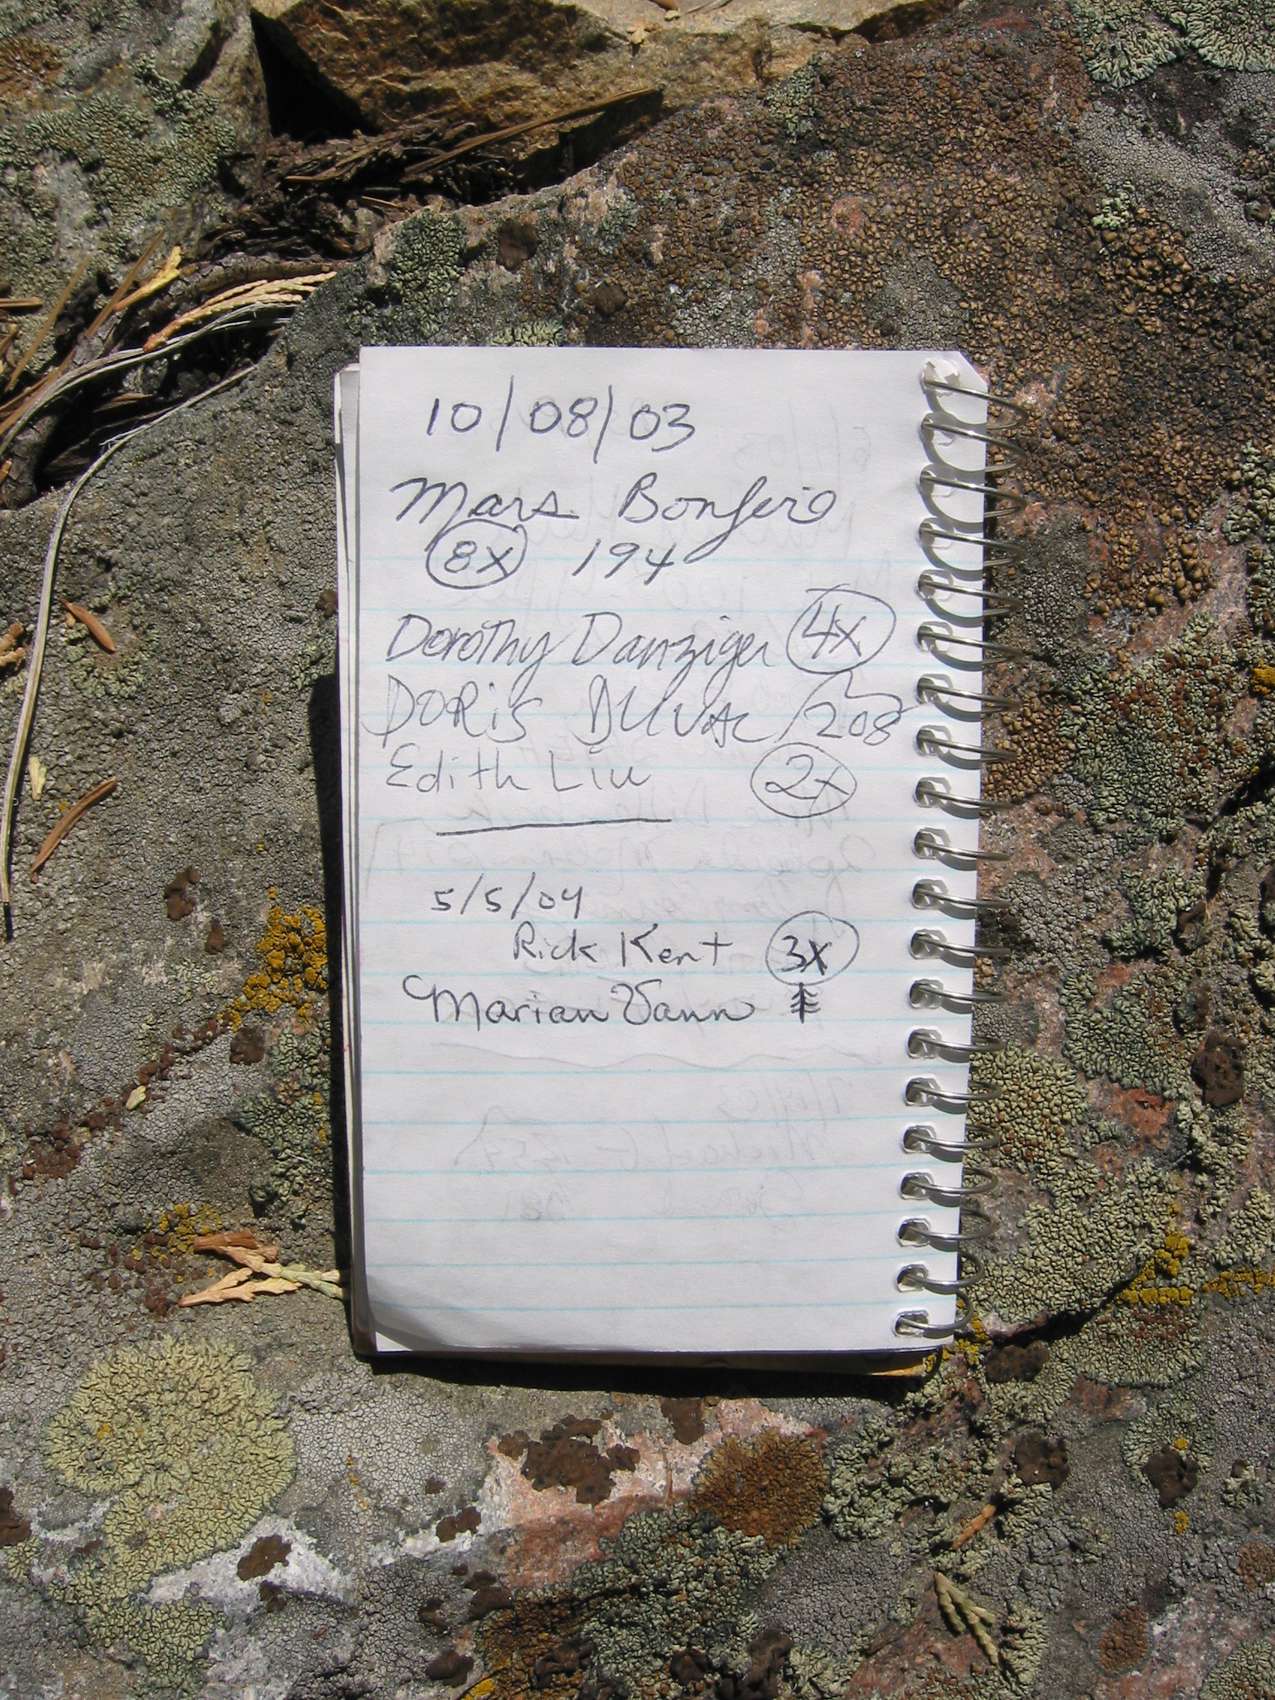 10/08/03
Mars Bonfire
8x 194
Dorothy Danziger 4x
DORIS DUVAL 208
Edith Liu 2x
5/5/04
Rick Kent 3x
Marian Vann